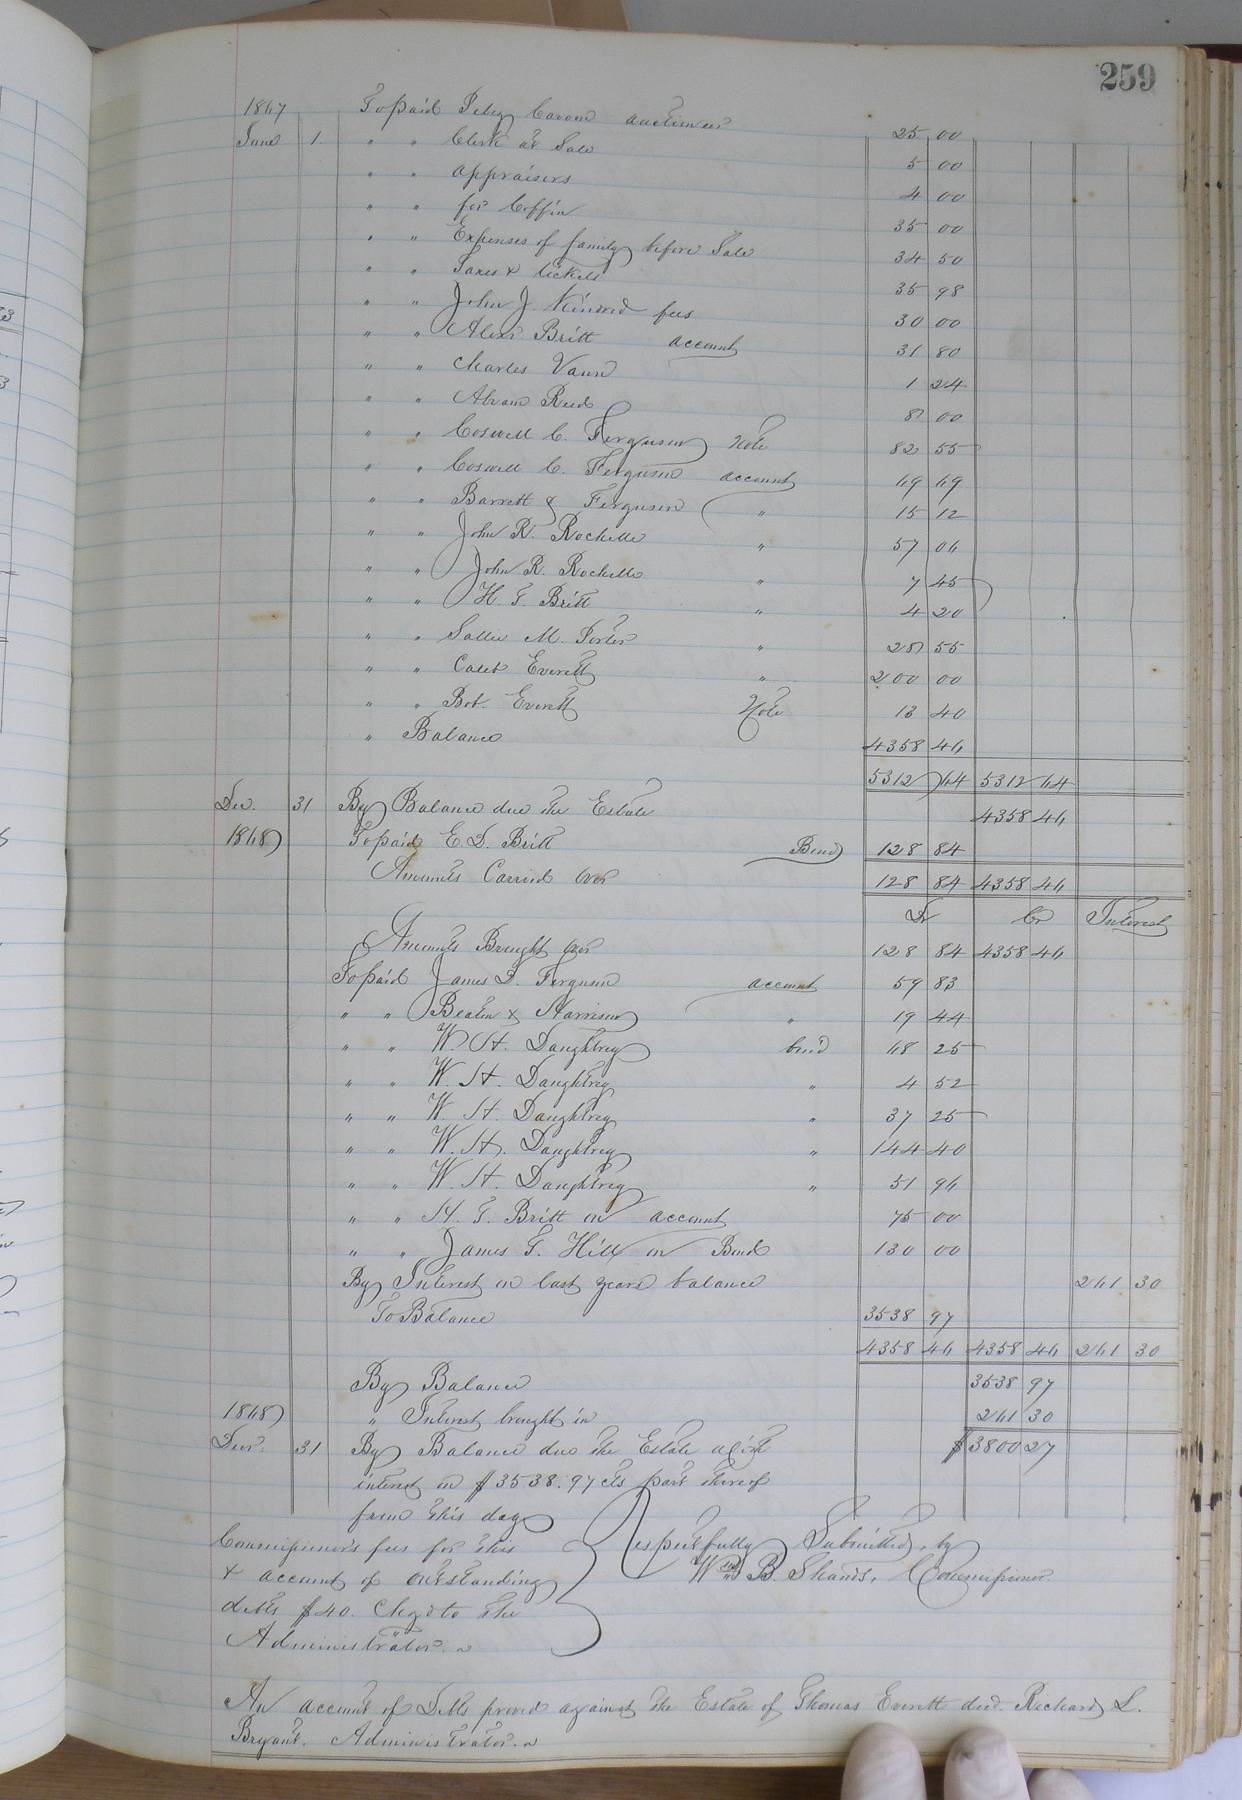 259
1867 To paid Peley Carom auctioneer 25 00
June 1 " " Clerk at Sale 5 00
" " appraisers 4 00
" " for Coffin 35 00
" " Expenses of family before Sale 34 50
" " Taxes & tickets 35 98
" " John J. Kindred fees 30 00
" " Alexr Britt account 31 80
" " Charles Vann 1 24
" " Abram Reed 8 00
" " Coswell C. Ferguson Note 82 55
" " Coswell C. Ferguson account 69 69
" " Barrett & Ferguson " 15 12
" " John R. Rochelle " 57 06
" " John R. Rochelle " 7 45
" " H. T. Britt " 4 20
" " Sallie M. Porter " 28 55
" " Caleb Everett " 200 00
" " Bot. Everett Note 13 40
" Balance 4358 46
5312 64 5312 64
Dec. 31 By Balance due the Estate 4358 46
1868 To paid E. D. Britt Bond 128 84
Amounts Carried Over 128 84 4358 46
Dr Cr Interest
Amounts Brought Over 128 84 4358 46
To paid James D. Ferguson account 59 83
" " Beaton & Harrison " 19 44
" " W. H. Daughtrey bond 68 25
" " W. H. Daughtrey " 4 52
" " W. H. Daughtrey " 37 25
" " W. H. Daughtrey " 144 40
" " W. H. Daughtrey " 51 96
" " H. T. Britt on account 75 00
" " James G. Hill on Bond 130 00
By Interest on last years balance 261 30
To Balance 3538 97
4358 46 4358 46 261 30
By Balance 3538 97
1868 " Interest brought in 261 30
Decr. 31 By Balance due the Estate with $3800 27
interest on $3538.97 cts part thereof
from this day
Commissioner's fees for this Respectfully Submitted, by
& account of outstanding Wm B. Shands, Commissioner
debts $40. Chgd to the
Administrator.
An account of Debts proved against the Estate of Thomas Everett decd. Richard L.
Bryant. Administrator.